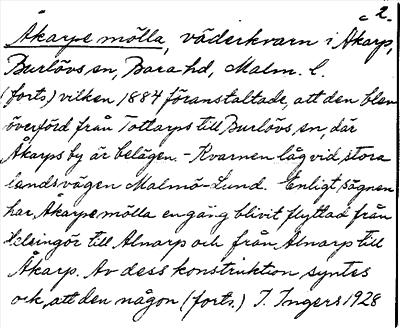 2.
Åkarps mölla, väderkvarn i Åkarp,
Burlövs sn, Bara hd, Malm. l.
(forts.) vilken 1884 föranstaltade, att den blev
överförd från Tottarps till Burlövs sn, där
Åkarps by är belägen. - Kvarnen låg vid stora
landsvägen Malmö-Lund. Enligt sägnen
har Åkarps mölla en gång blivit flyttad från
Helsingör till Alnarp och från Alnarp till
Åkarp. Av dess konstruktion syntes
ock, att den någon (forts.) I. Ingers 1928